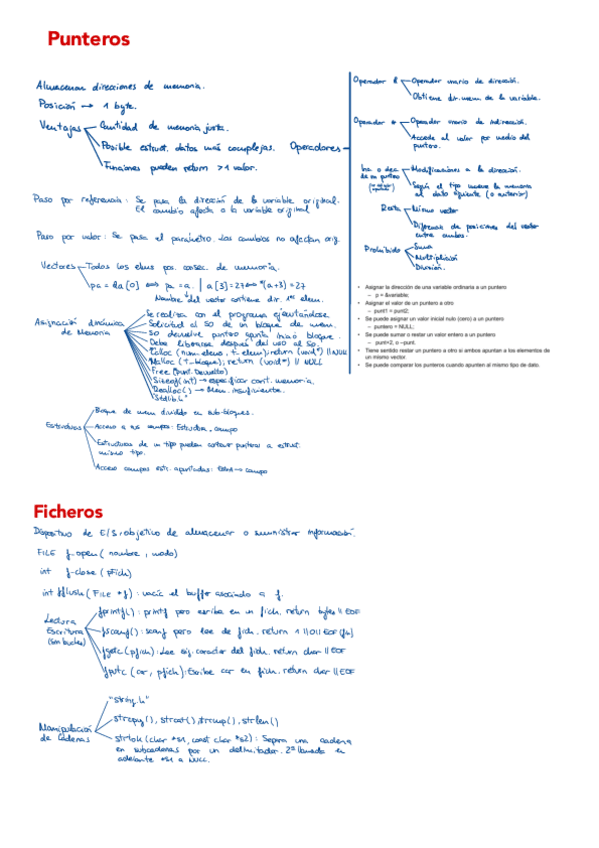 Punteros
Almacenan direcciones de memoria.
Posición → 1 byte.
Ventajas
Cantidad de memoria justa.
Posible estruct. datos más complejas.
Funciones pueden return >1 valor.
Paso por referencia: Se pasa la dirección de la variable original.
El cambio afecta a la variable original
Paso por valor: Se pasa el parámetro. Los cambios no afectan orig.
Vectores
Todos los elems pos. consec. de memoria.
pa = &a[0] ⟺ pa = a. | a[3]=27 ⟺ *(a+3)=27
Nombre del vector contiene dir. 1er elem.
Asignación dinámica
de Memoria
Se realiza con el programa ejecutándose.
Solicitud al SO de un bloque de mem.
SO devuelve puntero apunta inicio bloque.
Debe liberarse después del uso al SO.
Calloc (num_elems, t_elem); return (void*) || NULL
Malloc (t_bloque); return (void*) || NULL
Free (punt. devuelto)
Sizeof(int) → especificar cant. memoria.
Realloc() → Mem. insuficiente.
"Stdlib.h"
Estructuras
Bloque de mem dividido en sub-bloques.
Acceso a sus campos: Estructura.campo
Estructuras de un tipo pueden contener punteros a estruct.
mismo tipo.
Acceso campos estr. apuntadas: → campo
Operadores
Operador &
Operador unario de dirección.
Obtiene dir. mem de la variable.
Operador *
Operador unario de indirección.
Accede al valor por medio del
puntero.
Inc o dec
de un puntero
Modificaciones a la dirección.
Según el tipo mueve la memoria
al dato siguiente (o anterior)
Resta
Mismo vector
Diferencia de posiciones del vector
entre ambos.
Prohibido
Suma
Multiplicación
División.
• Asignar la dirección de una variable ordinaria a un puntero
– p = &variable;
• Asignar el valor de un puntero a otro
– punt1 = punt2;
• Se puede asignar un valor inicial nulo (cero) a un puntero
– puntero = NULL;
• Se puede sumar o restar un valor entero a un puntero
– punt+2, o –punt.
• Tiene sentido restar un puntero a otro si ambos apuntan a los elementos de
un mismo vector.
• Se puede comparar los punteros cuando apunten al mismo tipo de dato.
Ficheros
Dispositivo de E/S, objetivo de almacenar o suministrar información.
FILE f-open( nombre, modo)
int f-close ( pFich)
int fflush( FILE *f) : vacía el buffer asociado a f.
Lectura
Escritura
(sin bucles)
fprintf() : printf pero escribe en un fich. return bytes || EOF
fscanf() : scanf pero lee de fich. return 1 || 0 || EOF
fgetc (pfich): Lee sig. caracter del fich. return char || EOF
fputc (car, pfich): Escribe car en fich. return char || EOF
Manipulación
de Cadenas
"string.h"
strcpy(), strcat(), strcmp(), strlen()
strtok (char *s1, const char *s2) : Separa una cadena
en subcadenas por un delimitador. 2ª llamada en
adelante *s1 a NULL.